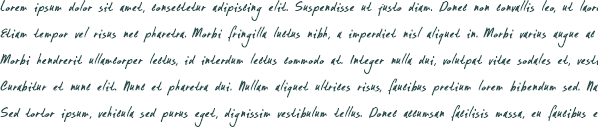 Lorem ipsum dolor sit amet, consectetur adipiscing elit. Suspendisse ut justo diam. Donec non convallis leo, ut laore
Etiam tempor vel risus nec pharetra. Morbi fringilla luctus nibh, a imperdiet nisl aliquet in. Morbi varius augue at
Morbi hendrerit ullamcorper lectus, id interdum lectus commodo at. Integer nulla dui, volutpat vitae sodales et, vesti
Curabitur et nunc elit. Nunc et pharetra dui. Nullam aliquet ultrices risus, faucibus pretium lorem bibendum sed. Na
Sed tortor ipsum, vehicula sed purus eget, dignissim vestibulum tellus. Donec accumsan facilisis massa, eu faucibus e